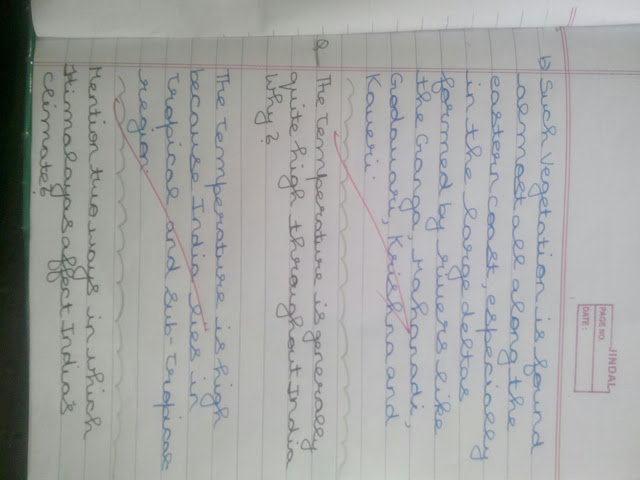 JINDAL
PAGE NO.
DATE:
b) Such vegetation is found
almost all along the
eastern coast, especially
in the large deltas
formed by rivers like
the Ganga, Mahanadi,
Godavari, Krishna and
Kaveri.
Q The Temperature is generally
quite high throughout India
Why?
The Temperature is high
because India lies in
Tropical and Sub-Tropical
region
Mention two ways in which
Himalayas affect India's
climate?